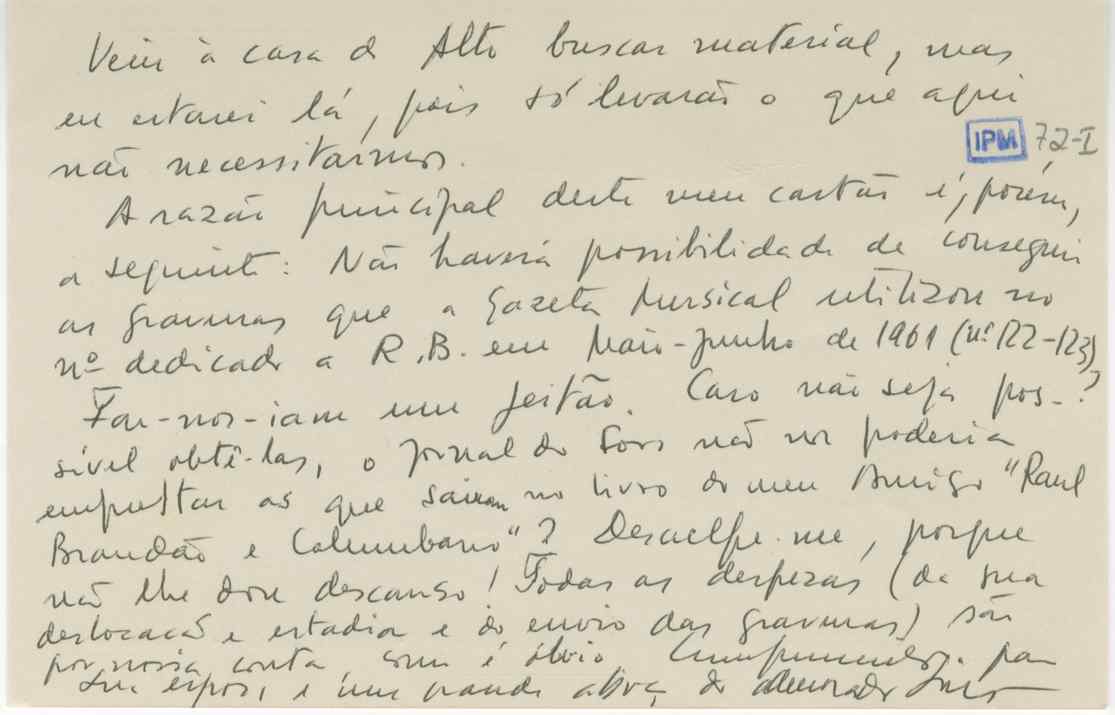 Vem à casa do Alto buscar material, mas
eu estarei lá, pois só levarão o que aqui
não necessitarmos.
IPM 72-I
A razão principal deste meu cartão é, porém,
a seguinte: Não haverá possibilidade de conseguir
as gravuras que a Gazeta Musical utilizou no
nº dedicado a R.B. em Maio-Junho de 1961 (nº 122-123)
?
Far-nos-iam um jeitão. Caso não seja pos-
sível obtê-las, o Jornal do Foro não nos poderia
emprestar as que saíram no livro do meu Amigo "Raul
Brandão e Columbano"? Desculpe-me, porque
não lhe dou descanso! Todas as despezas (da sua
deslocação e estadia e do envio das gravuras) são
por nossa conta, como é óbvio. Cumprimentos para
sua esposa e um grande abraço do